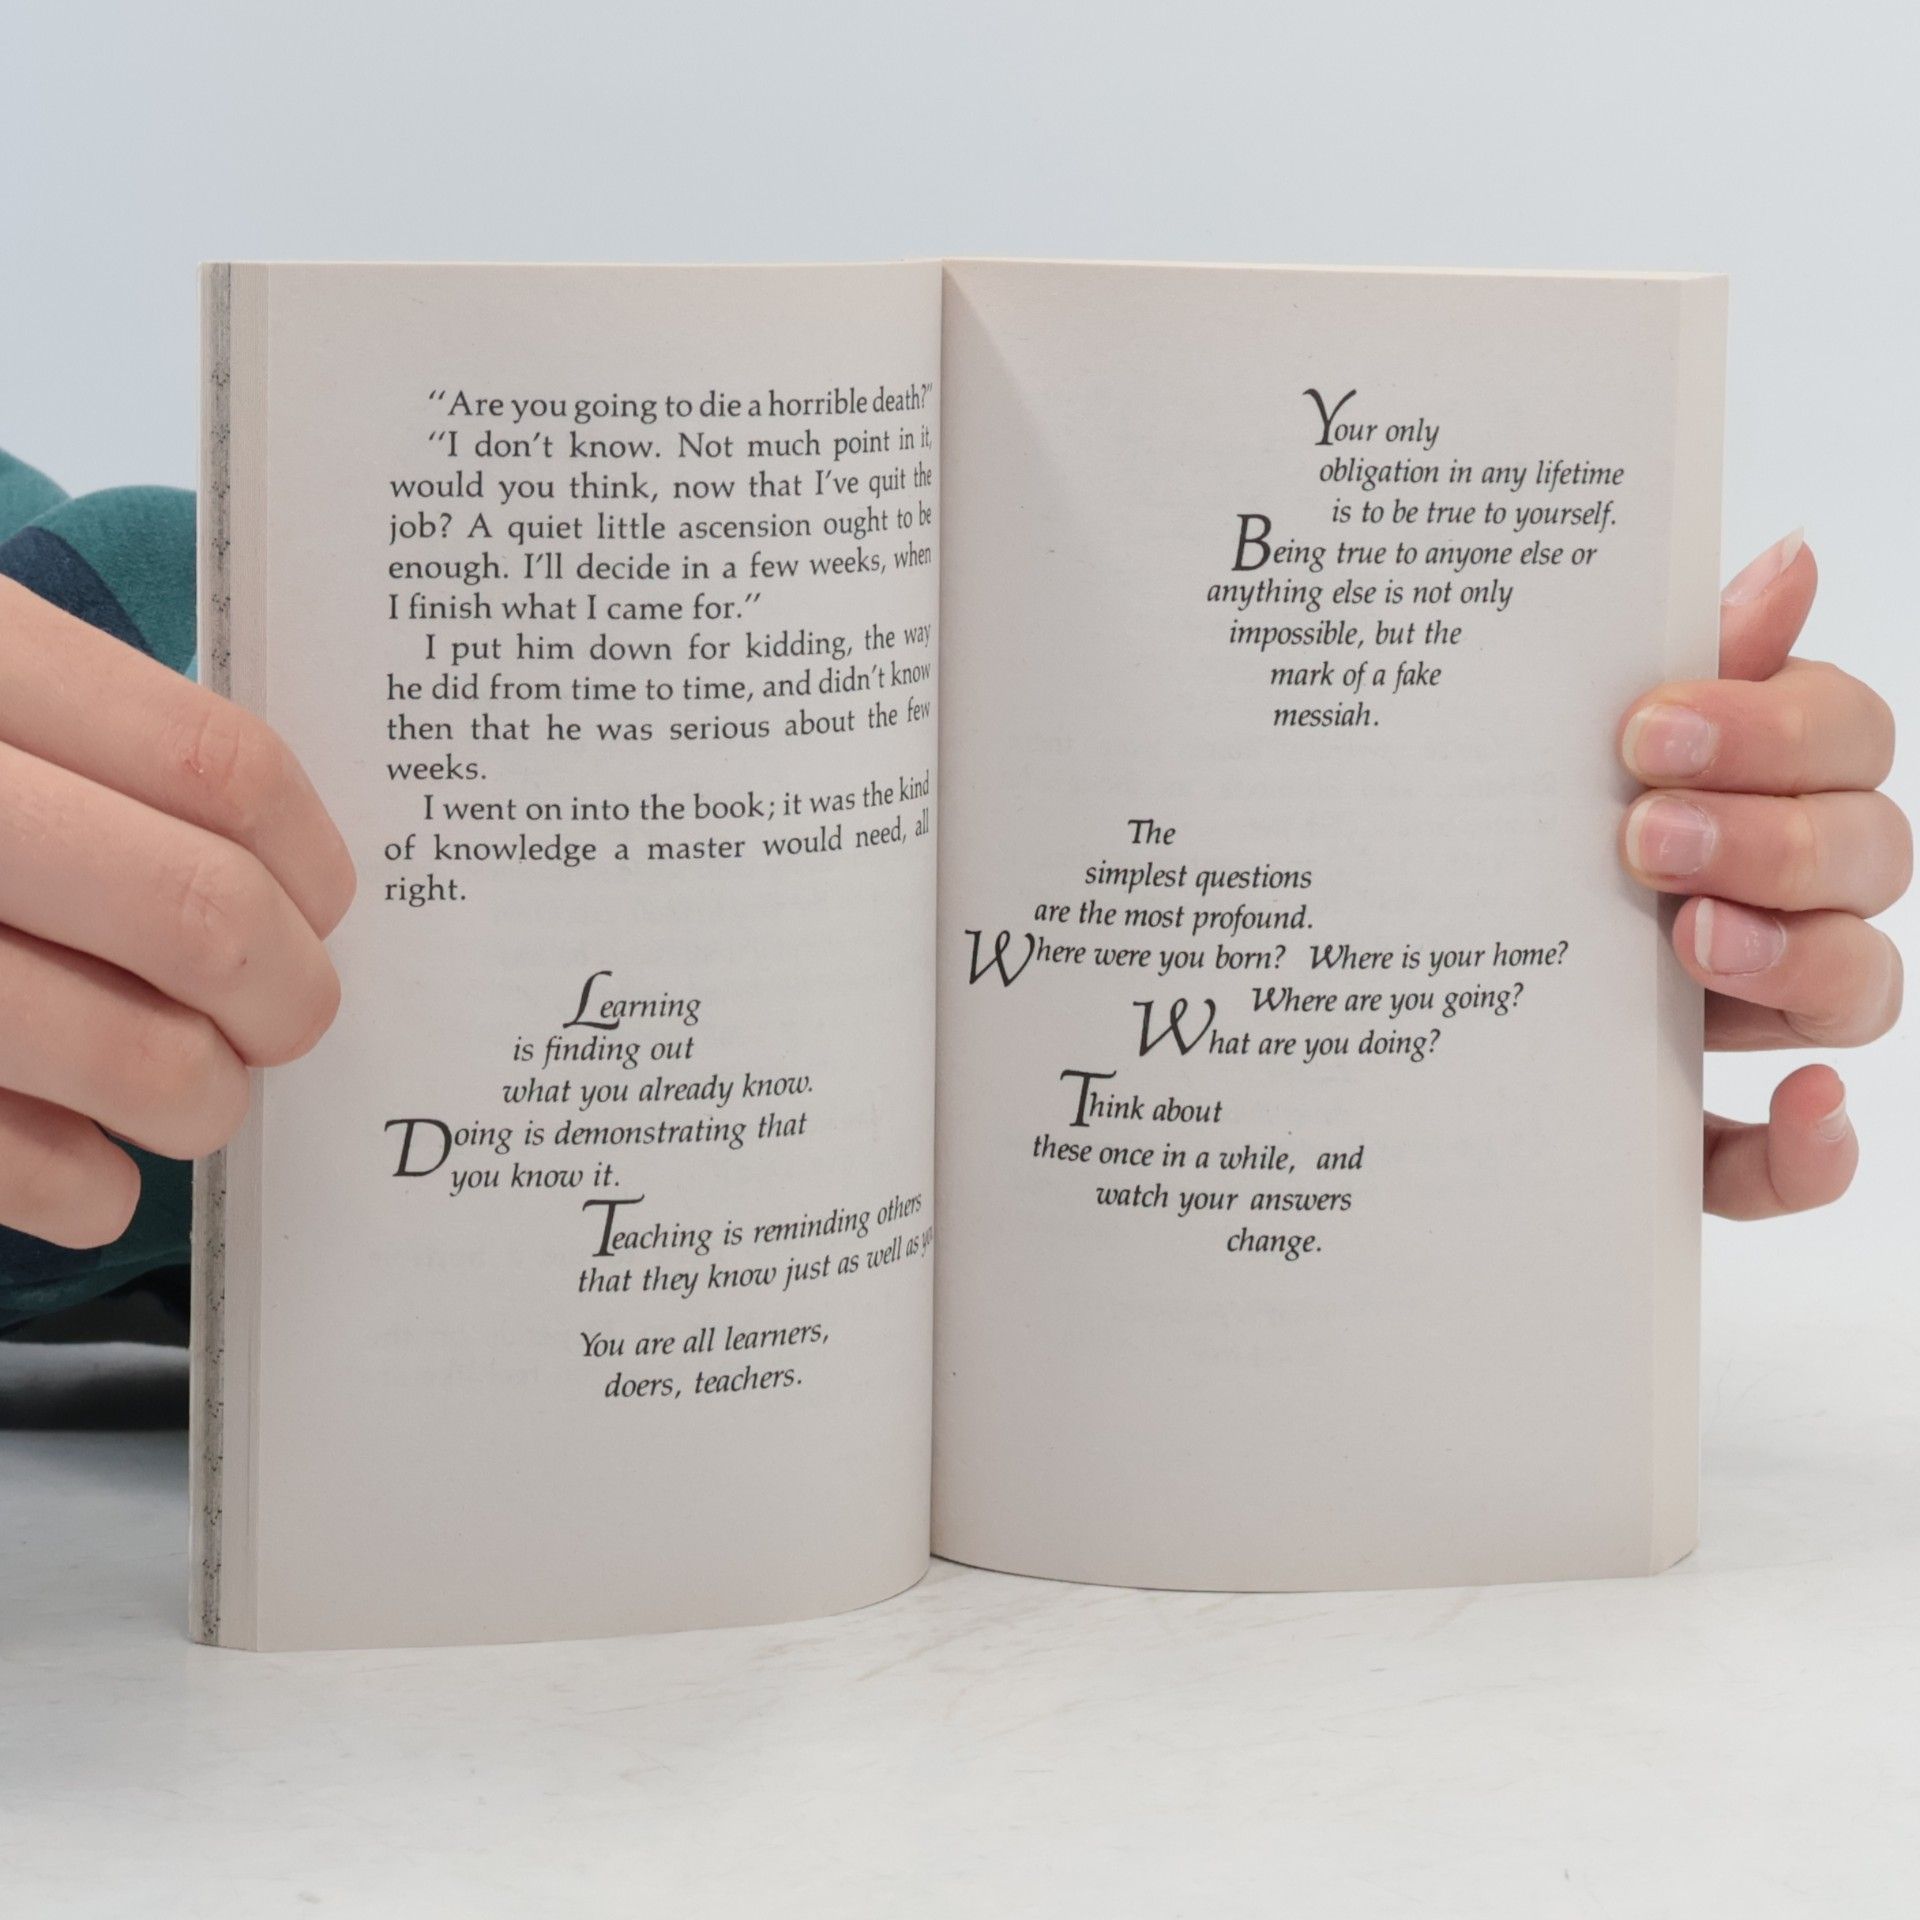 “Are you going to die a horrible death?”
“I don’t know. Not much point in it,
would you think, now that I’ve quit the
job? A quiet little ascension ought to be
enough. I’ll decide in a few weeks, when
I finish what I came for.”
I put him down for kidding, the way
he did from time to time, and didn’t know
then that he was serious about the few
weeks.
I went on into the book; it was the kind
of knowledge a master would need, all
right.
Learning
is finding out
what you already know.
Doing is demonstrating that
you know it.
Teaching is reminding others
that they know just as well as you
You are all learners,
doers, teachers.
Your only
obligation in any lifetime
is to be true to yourself.
Being true to anyone else or
anything else is not only
impossible, but the
mark of a fake
messiah.
The
simplest questions
are the most profound.
Where were you born? Where is your home?
Where are you going?
What are you doing?
Think about
these once in a while, and
watch your answers
change.